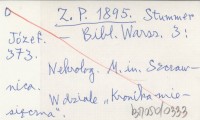 Z. P. 1895. Stummer
Józef. — Bibl. Warsz. 3:
373.
Nekrolog. M. in. Szczaw-
nica.
W dziale „Kronika mie-
sięczna".